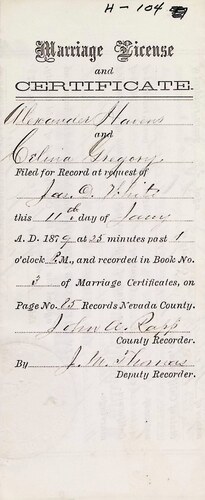 H-104
Marriage License
and
CERTIFICATE.
Alexander
and
Gregory
Filed for Record at request of
Jas. D. White
this 11th day of
A. D. 1879 at 25 minutes past 1
o'clock P.M., and recorded in Book No.
3 of Marriage Certificates, on
Page No. 85 Records Nevada County.
John A. Rapp
County Recorder.
By J. M. Thomas
Deputy Recorder.